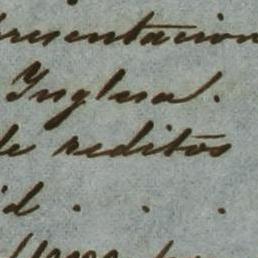 presentacion
Inglesa.
de reditos
id . . .